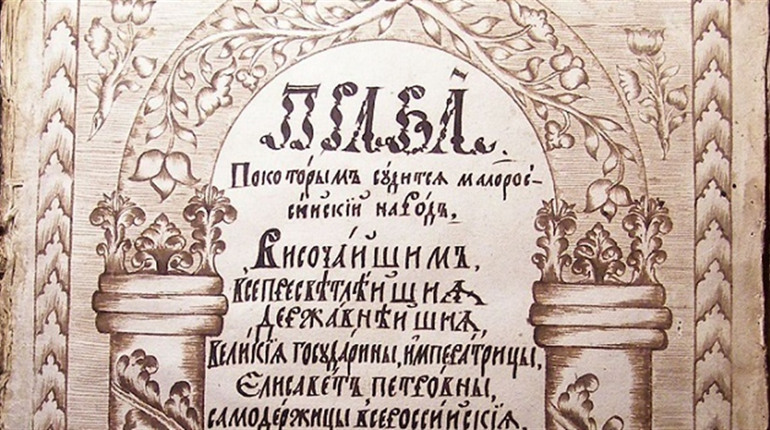 ПРАВА̀.
Покото́рымъ су́дится малорос-
си́искїй наро́дъ,
Височа́йшимъ,
Всепресвѣтлѣ́ишїя
Державнѣ́ишїя,
Вели́кїя госуда́рины, импера́трицы,
Елисаве́тъ, петро́вны,
самоде́ржицы всеросси́искїя,